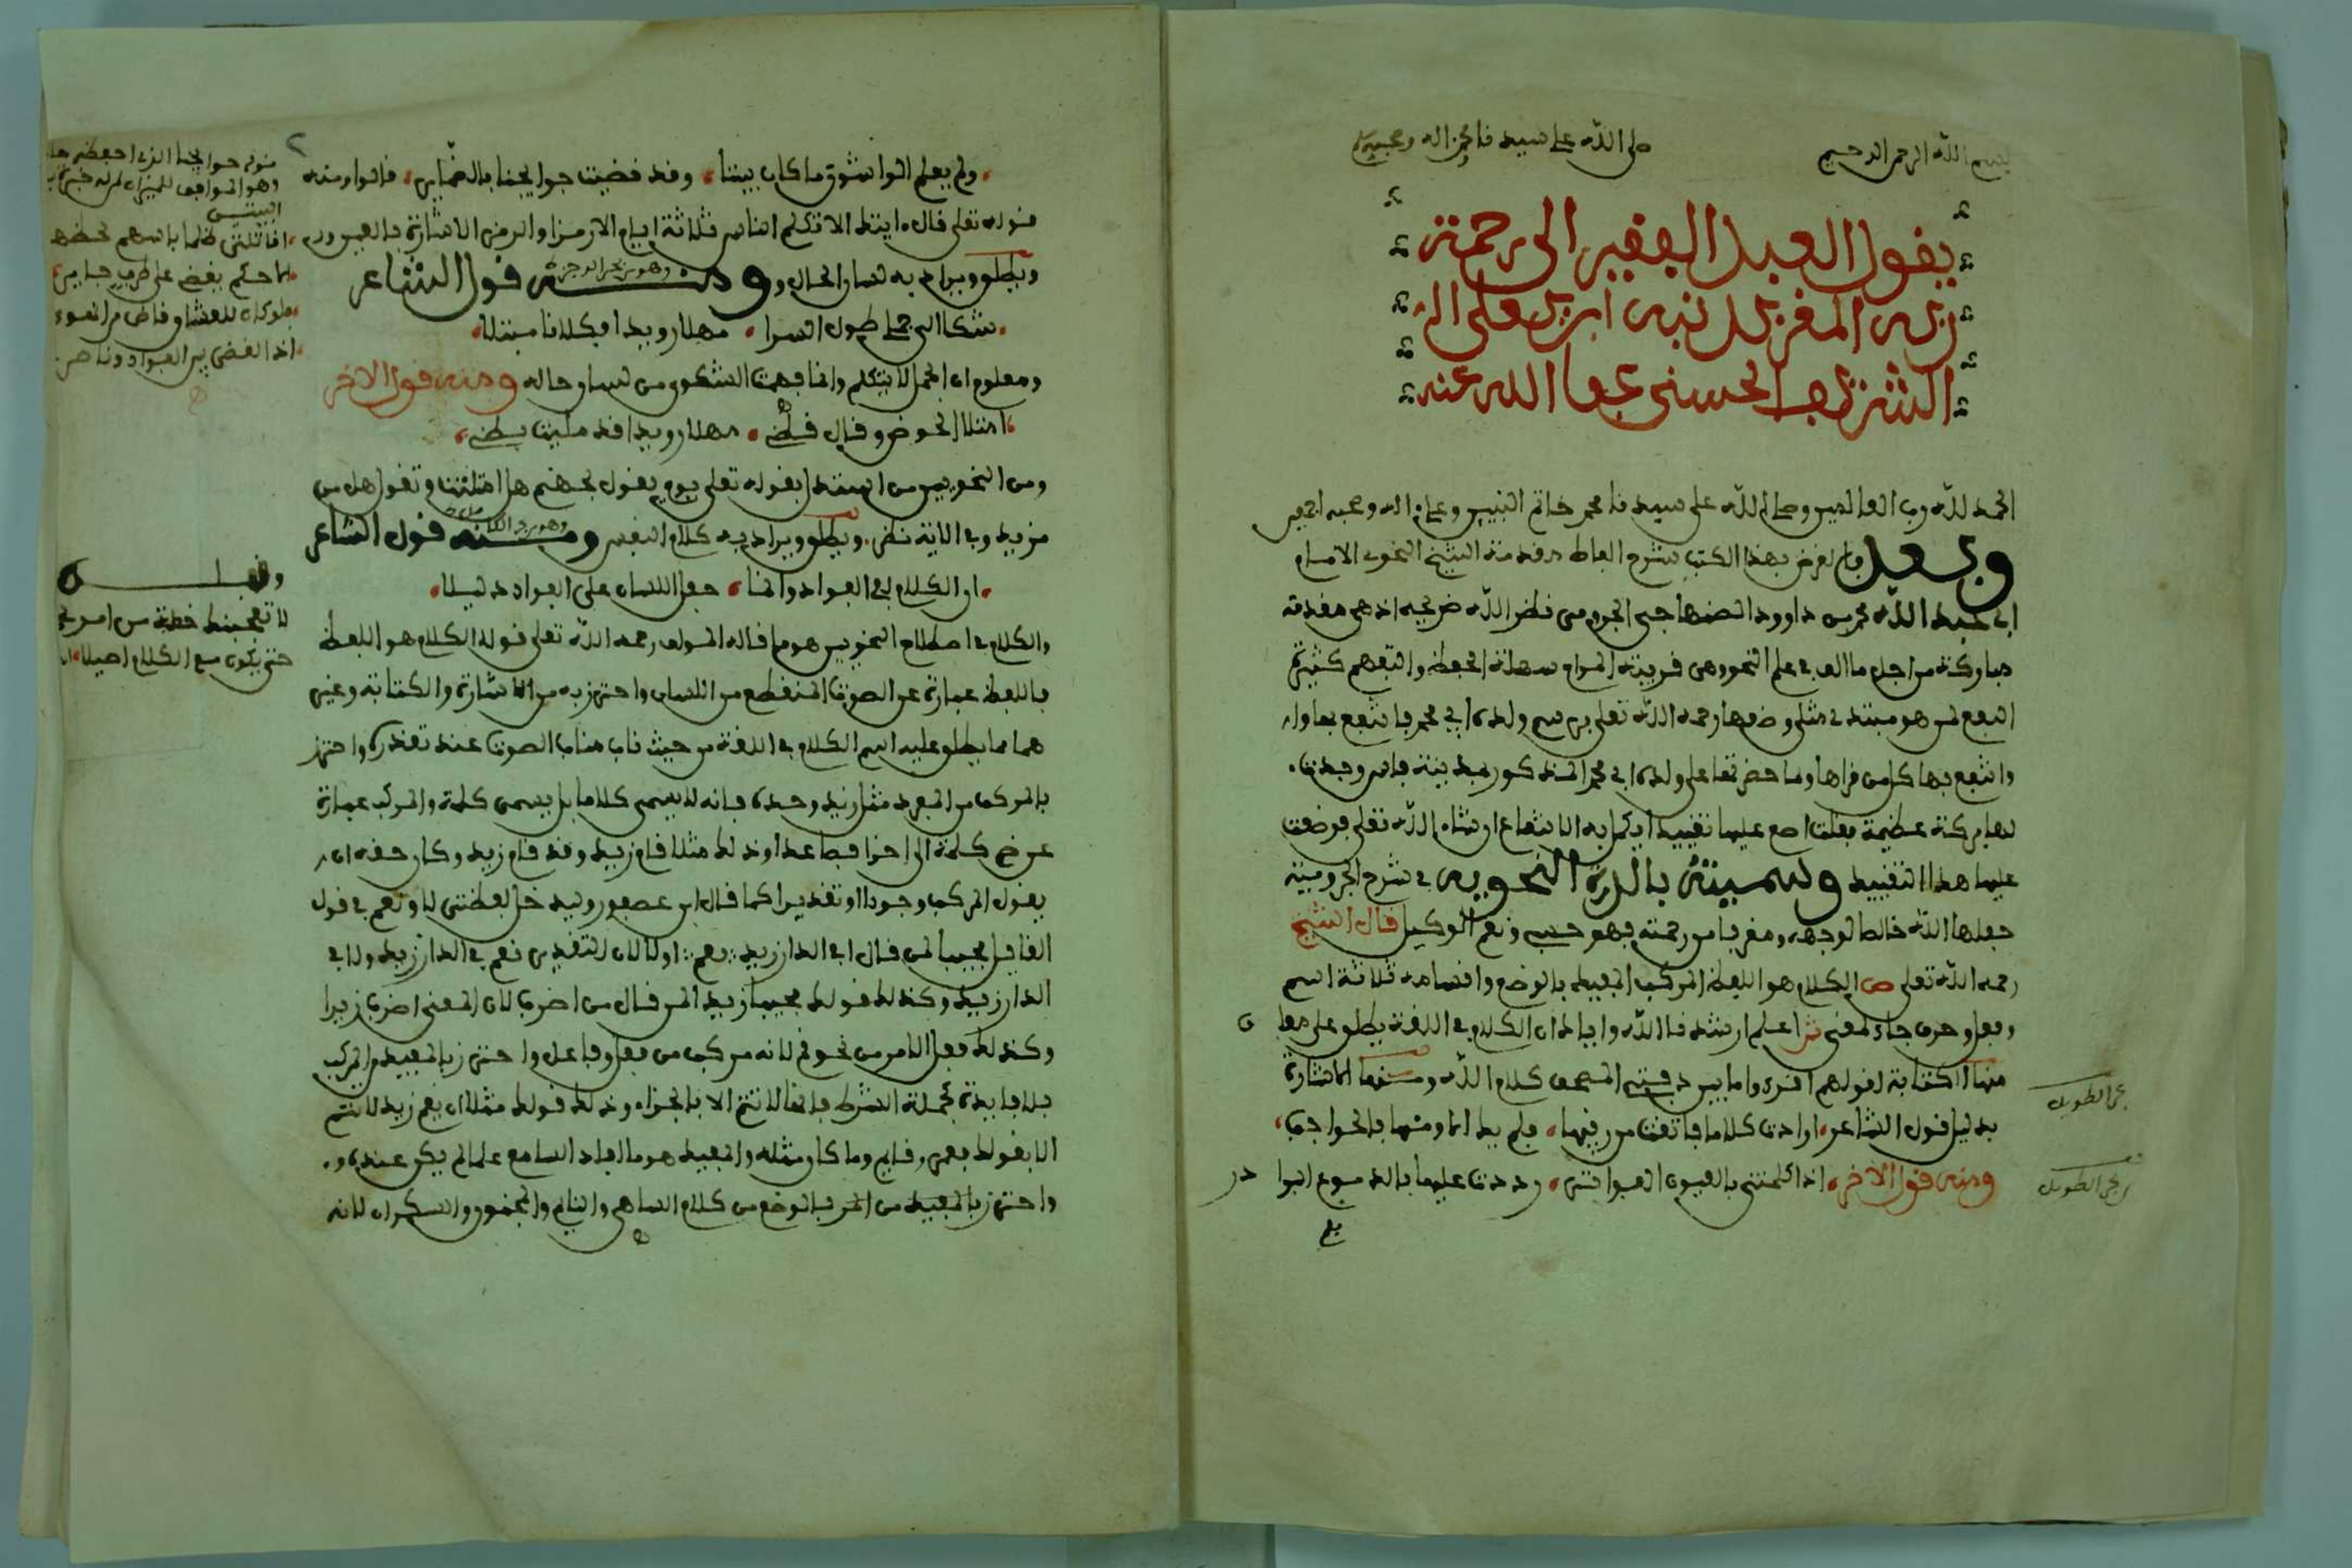 بسم الله الرحمن الرحيم صلى الله على سيدنا محمد وءاله وصحبه
يقول العبد الفقير الى رحمة
ربه المقر بذنبه ابن يعلى
الشريف الحسني عفا الله عنه
الحمد لله رب العالمين وصلى الله على سيدنا محمد خاتم النبيين وعلى اله وصحبه اجمعين
وبعد فان الغرض بهذا الكتاب شرح الفاظ مقدمة الشيخ النحوي الامام
ابي عبد الله محمد بن داوود الصنهاجي الجرومي نظر الله ضريحه اذ هي مقدمة
مباركة من اجل ما الف في علم النحو وهي قريبة المرام سهلة الحفظ والتفهم كثيرة
النفع لمن هو مبتدئ مثلي وضعها رحمه الله تعلى برسم ولده ابي محمد فانتفع بها وا
وانتفع بها كل من قراها وما حضرتها على ولده ابي محمد المذكور بمدينة فاس وجدت
لها بركة عظيمة فقلت اضع عليها تقييدا يكمل به الانتفاع ان شاء الله تعلى فوضعت
عليها هذا التقييد وسميته بالدرة النحوية في شرح الجرومية
جعلها الله خالصا لوجهه ومقربا من رحمته فهو حسبي ونعم الوكيل قال الشيخ
رحمه الله تعلى ص الكلام هو اللفظ المركب المفيد بالوضع واقسامه ثلاثة اسم
وفعل وحرف جاء لمعنى ش اعلم ارشدنا الله واياك ان الكلام في اللغة يطلق على معان
منها الكتابة لقولهم اقروا ما بين دفتي المصحف كلام الله ومنها الاشارة
بدليل قول الشاعر ارادت كلاما فاتقت من رقيبها فلم يك الا ومئها بالحواجب
ومنه قول الاخر اذا كلمتني بالعيون الفواتر رددت عليها بالدموع البوادر
بحر الطويل
بحر الطويل
ولم يعلم الواشون ما كان بيننا وقد قضيت حوايجنا بالضماير قالوا ومنه
قوله تعلى قال ءايتك الا تكلم الناس ثلاثة ايام الا رمزا والرمز الاشارة بالعين
ويطلق ويراد به لسان الحال ومنه وهو من بحر الرجز قول الشاعر
شكا الي جملي طول السرا مهلا رويدا فكلانا مبتلا
ومعلوم ان الجمل لا يتكلم وانما فهمت الشكوى من لسان حاله ومنه قول الاخر
امتلا الحوض وقال قطني مهلا رويدا قد مليت بطني
ومن النحويين من استدل بقوله تعلى يوم يقول لجهنم هل امتلئت وتقول هل من
مزيد وفي الاية نظر ويطلق ويراد به كلام النفس ومنه وهو من الكامل قول الشاعر
ان الكلام لفي الفواد وانما جعل اللسان على الفواد دليلا
والكلام في اصطلاح النحويين هو ما قاله المولف رحمه الله تعلى قوله الكلام هو اللفظ
فاللفظ عبارة عن الصوت المتقطع من اللسان واحترز به من الاشارة والكتابة وغير
هما مما يطلق عليه اسم الكلام في اللغة من حيث ناب مناب الصوت عند تعذره واحترز
بالمركب من المفرد مثل زيد وحده فانه لا يسمى كلاما بل يسمى كلمة والمركب عبارة
عن ضم كلمة الى اخرى فصاعدا وذلك مثل قام زيد وقد قام زيد وكان حقه ان
يقول المركب وجودا او تقديرا كما قال ابن عصفور وليدخل لفظتي لا ونعم في قول
القايل مجيبا لمن قال افي الدار زيد نعم او لا لان التقدير نعم في الدار زيد ولا في
الدار زيد وكذلك قولك مجيبا زيدا لمن قال من اضرب لان المعنى اضرب زيدا
وكذلك فعل الامر من نحو قم لانه مركب من فعل وفاعل واحترز بالمفيد من المركب
بلا فايدة كجملة الشرط فانها لا تتم الا بالجزاء وذلك قولك مثلا ان يقم زيد لا تتم
الا بقولك يقم عمر وقايم وما كان مثله والمفيد هو ما افاد السامع علما لم يكن عنده
واحترز بالمفيد من المركب بالوضع من كلام الساهي والنايم والمجنون والسكران لانه
قوله حوايجنا الذي احفظه
وهو الموافق للميزان
البيتين
اقاتلتي ظلما باسهم لحظها
اما حكم يقضي على طرف جاير
فلو كان للعشاق قاض من الهوى
اذا لقضى بين الفواد وناظر
وقبله
لا تعجبنك خطبة من امرئ
حتى يكون مع الكلام اصيلا